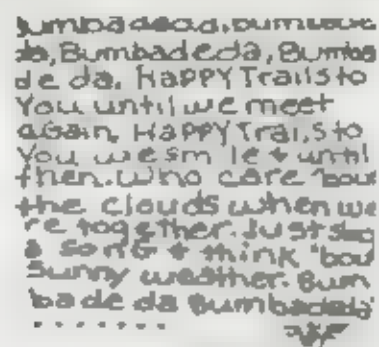 Bumbadeda, Bumbade
da, Bumbadeda, Bumba
de da, HAPPY Trails to
You until we meet
again, HAPPY Trails to
You wesm le + until
then. Who care 'bout
the clouds when we
re together. Just sing
a song + think 'bout
Sunny weather. Bum
ba de da Bumbadeda
.......